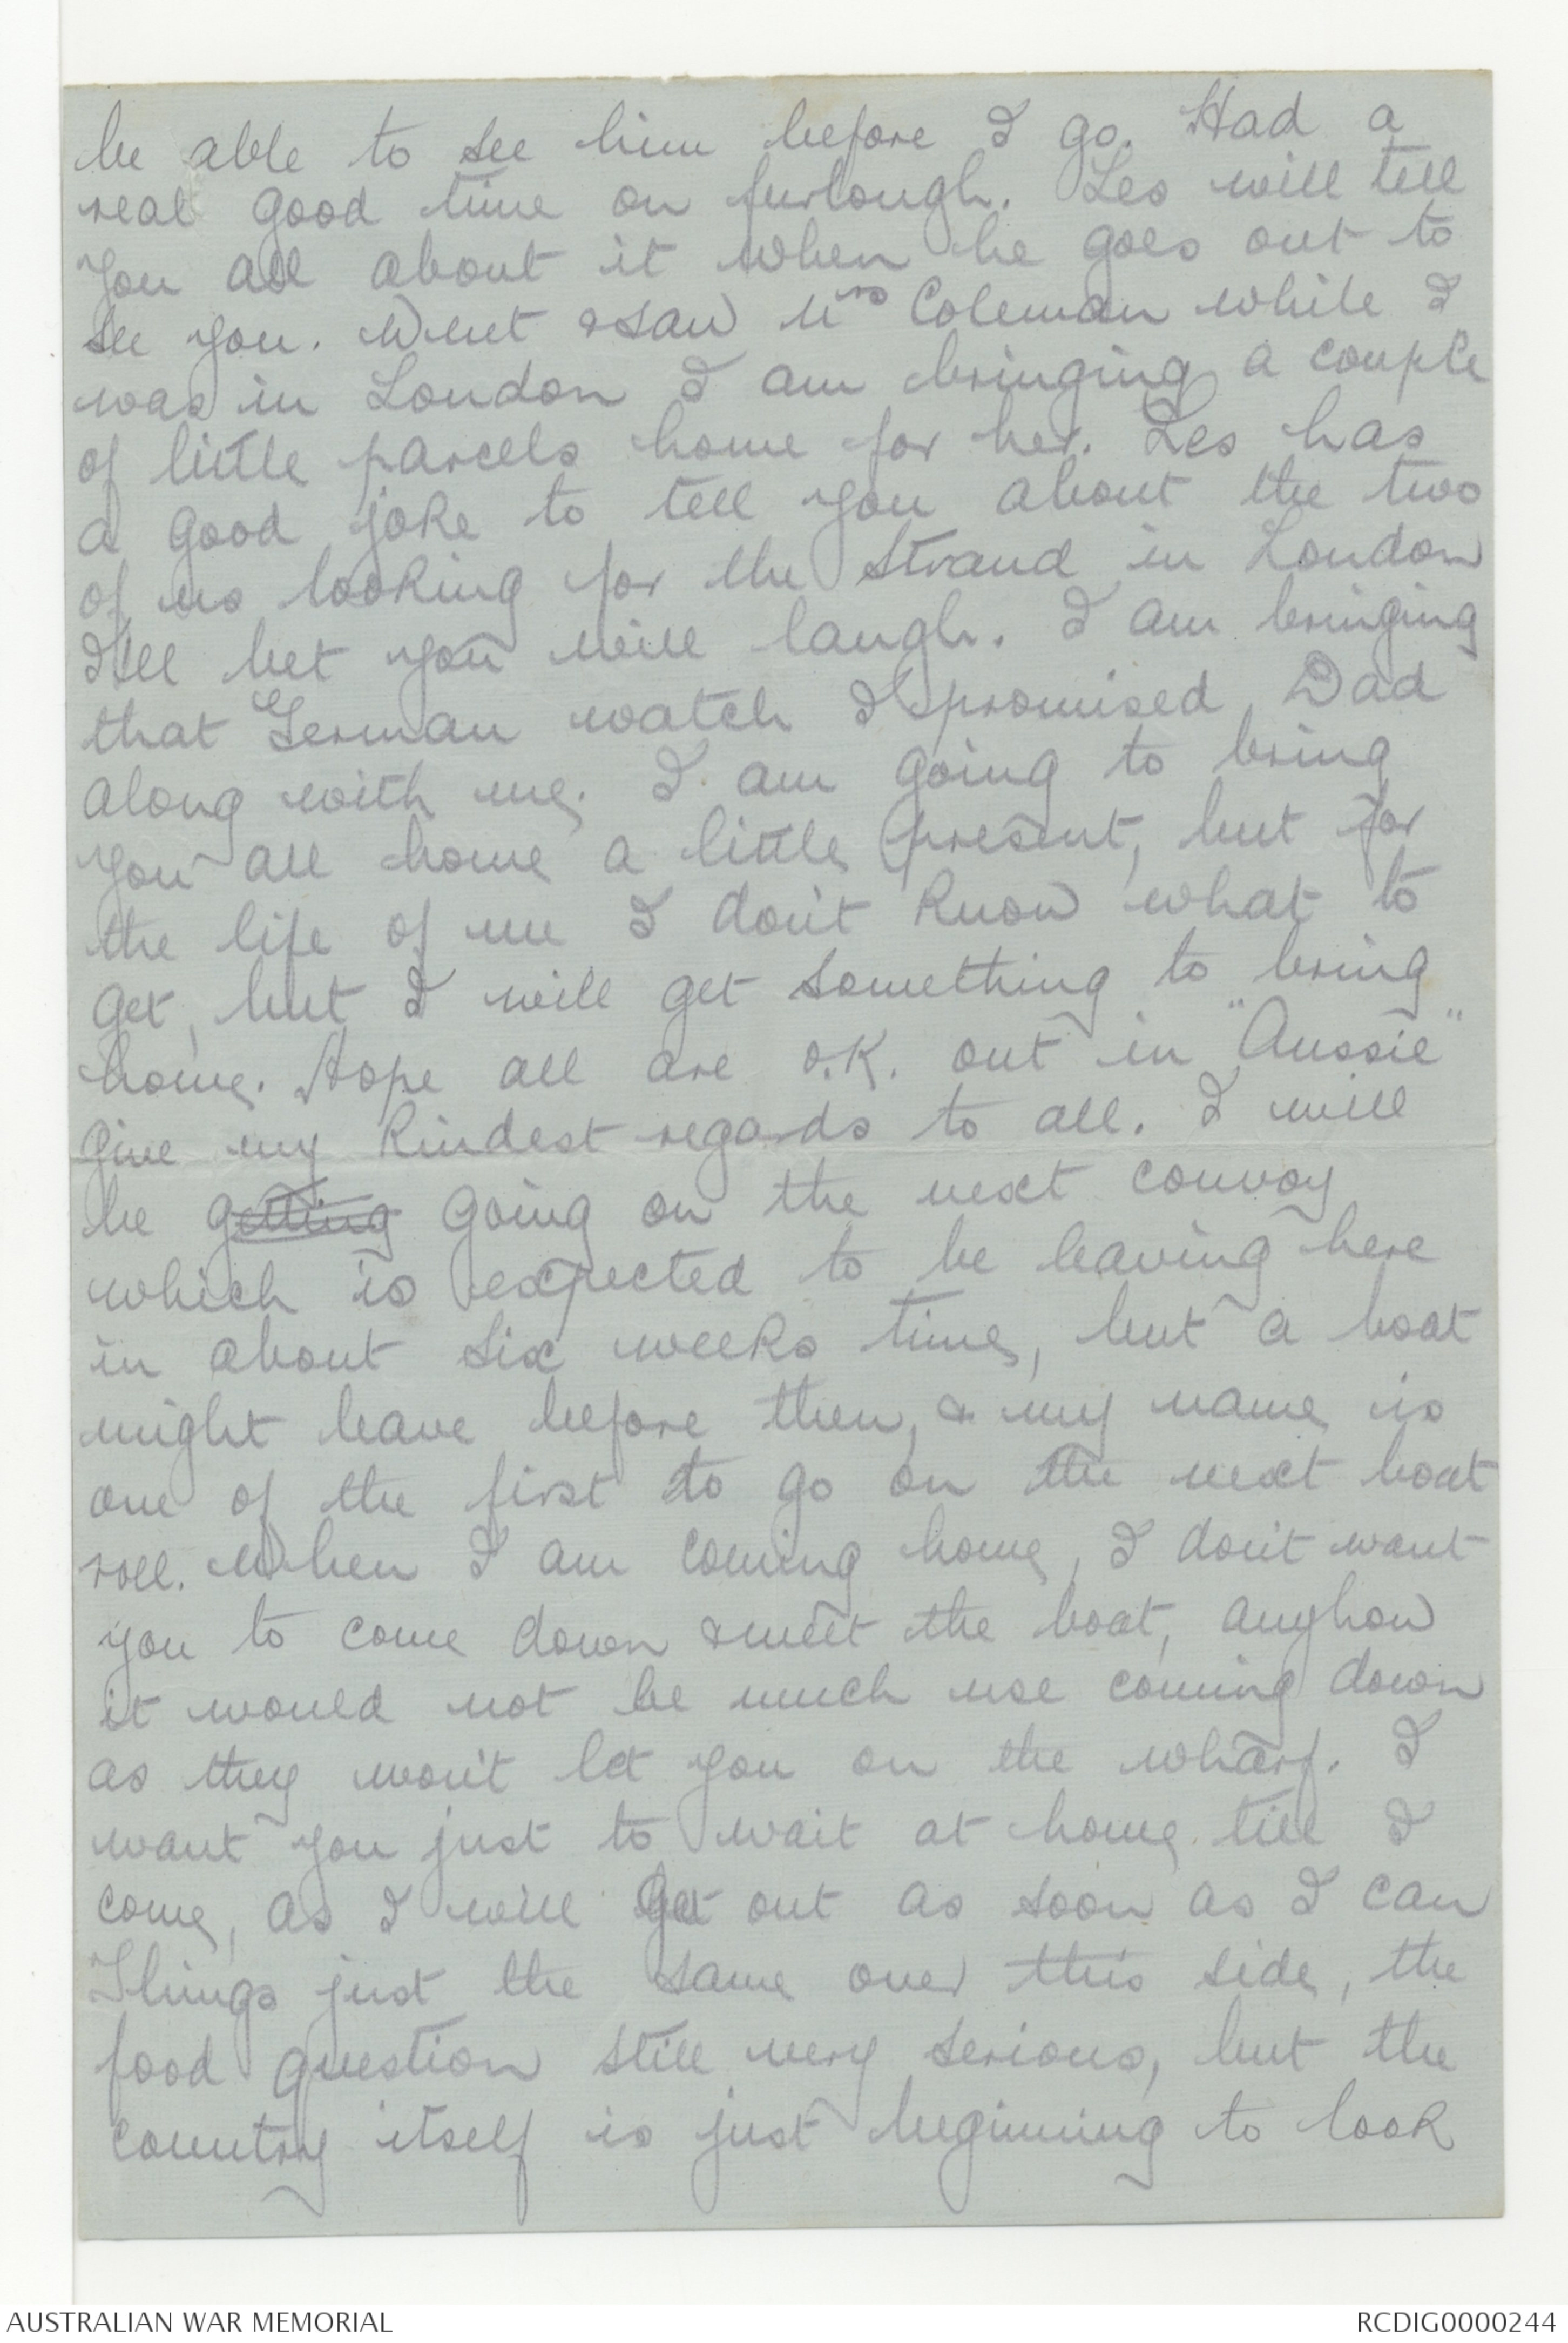 be able to see him before I go. Had a
real good time on furlough. Les will tell
you all about it when he goes out to
see you. Went & saw Mrs Coleman while I
was in London I am bringing a couple
of little parcels home for her. Les has
a good joke to tell you about the two
of us looking for the Strand in London
I'll bet you will laugh. I am bringing
that German watch I promised Dad
along with me. I am going to bring
you all home a little present, but for
the life of me I don't know what to
get, but I will get something to bring
home. Hope all are O.K. out in "Aussie"
give my kindest regards to all. I will
be getting going on the next convoy
which is expected to be leaving here
in about six weeks time, but a boat
might leave before then, & my name is
one of the first to go on the next boat
roll. When I am coming home, I don't want
you to come down & meet the boat, anyhow
it would not be much use coming down
as they won't let you on the wharf. I
want you just to wait at home till I
come, as I will get out as soon as I can
Things just the same over this side, the
food question still very serious, but the
country itself is just beginning to look
AUSTRALIAN WAR MEMORIAL
RCDIG0000244